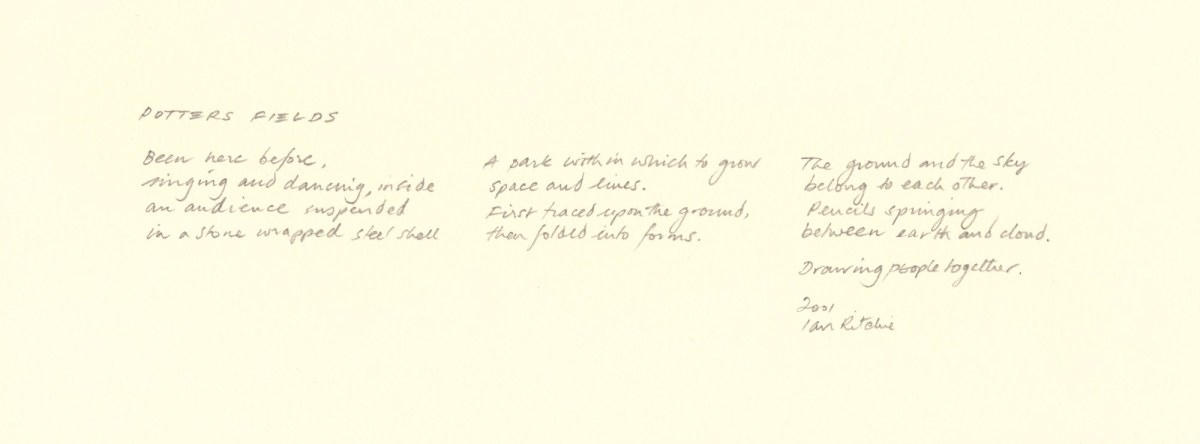 POTTERS FIELDS
Been here before,
singing and dancing, inside
an audience suspended
in a stone wrapped steel shell
A park within which to grow
space and lives.
First traced upon the ground,
then folded into forms.
The ground and the sky
belong to each other.
Pencils springing
between earth and cloud.
Drawing people together.
2001
Ian Ritchie